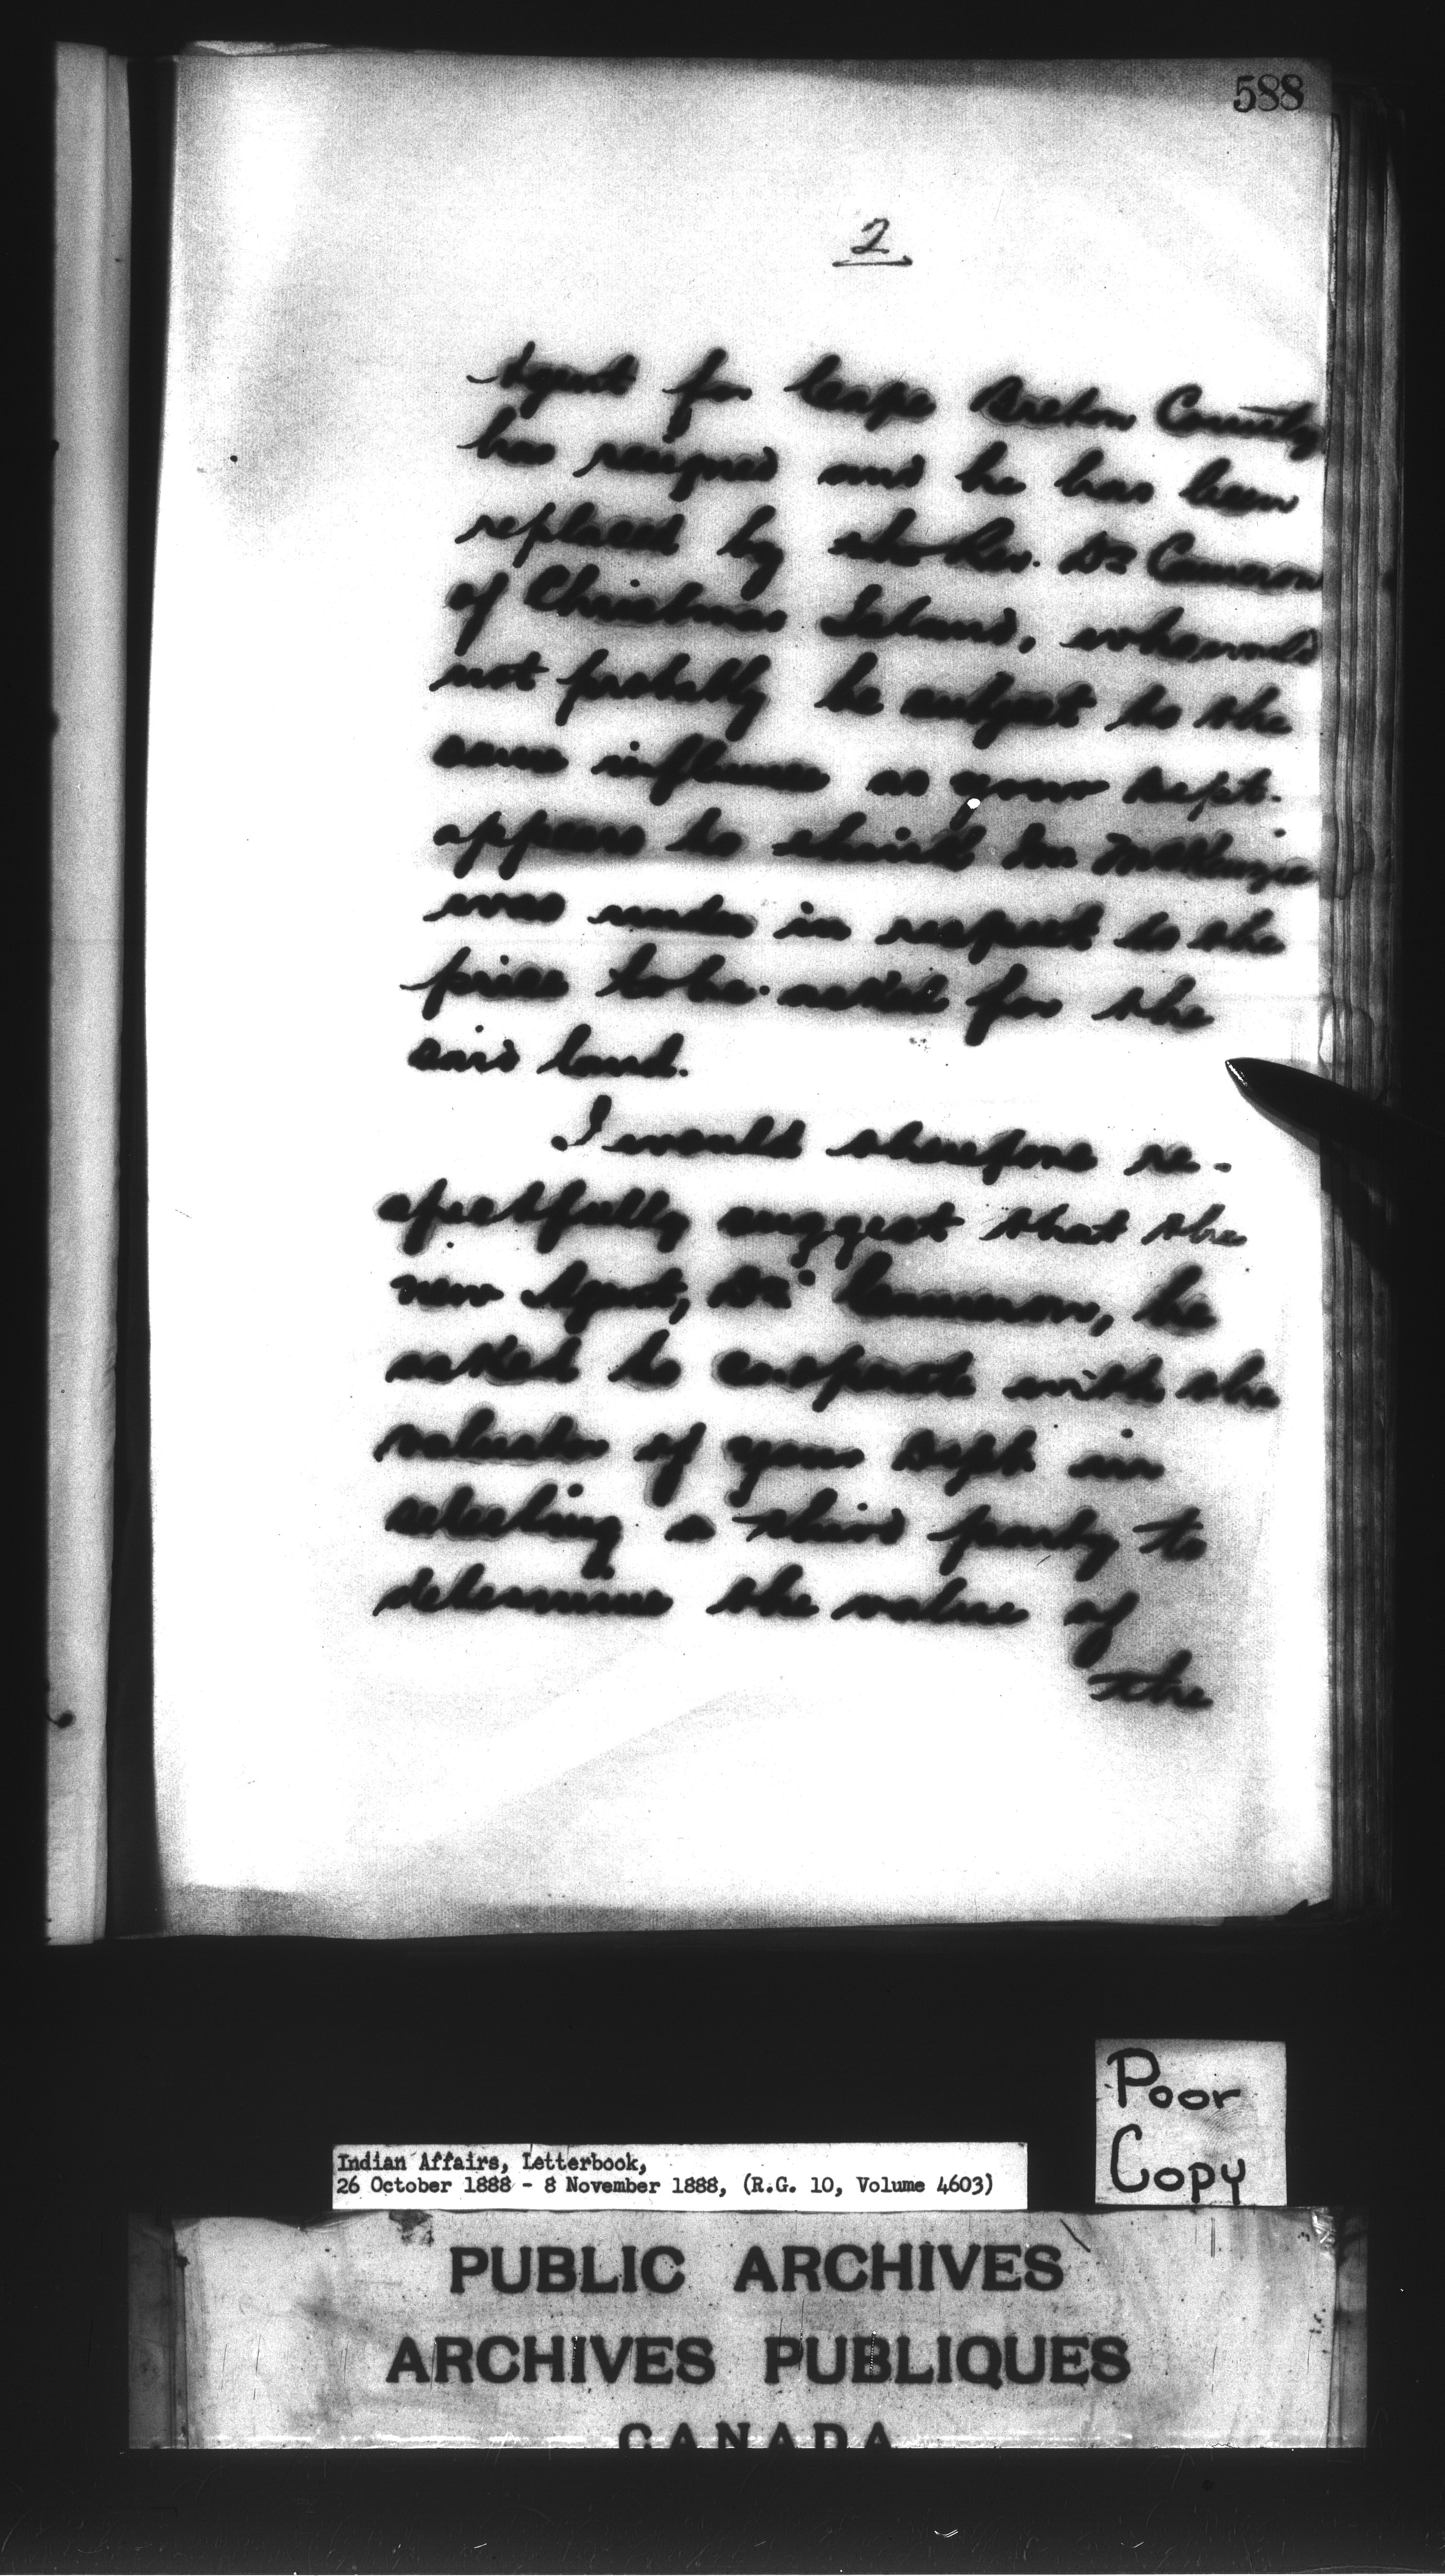 588
2
Agent for Cape Breton County
has resigned and he has been
replaced by the Rev. Dr Cameron
of Christmas Island, who would
not probably be subject to the
same influence as your Dept.
appears to think Mr McKenzie
was under in respect to the
price to be asked for the
said land.
I would therefore re-
spectfully suggest that the
new Agent, Dr. Cammeron, be
asked to cooperate with the
valuator of your Dept. in
selecting a third party to
determine the value of
the
Poor
Copy
Indian Affairs, Letterbook,
26 October 1888 - 8 November 1888, (R.G. 10, Volume 4603)
PUBLIC ARCHIVES
ARCHIVES PUBLIQUES
CANADA